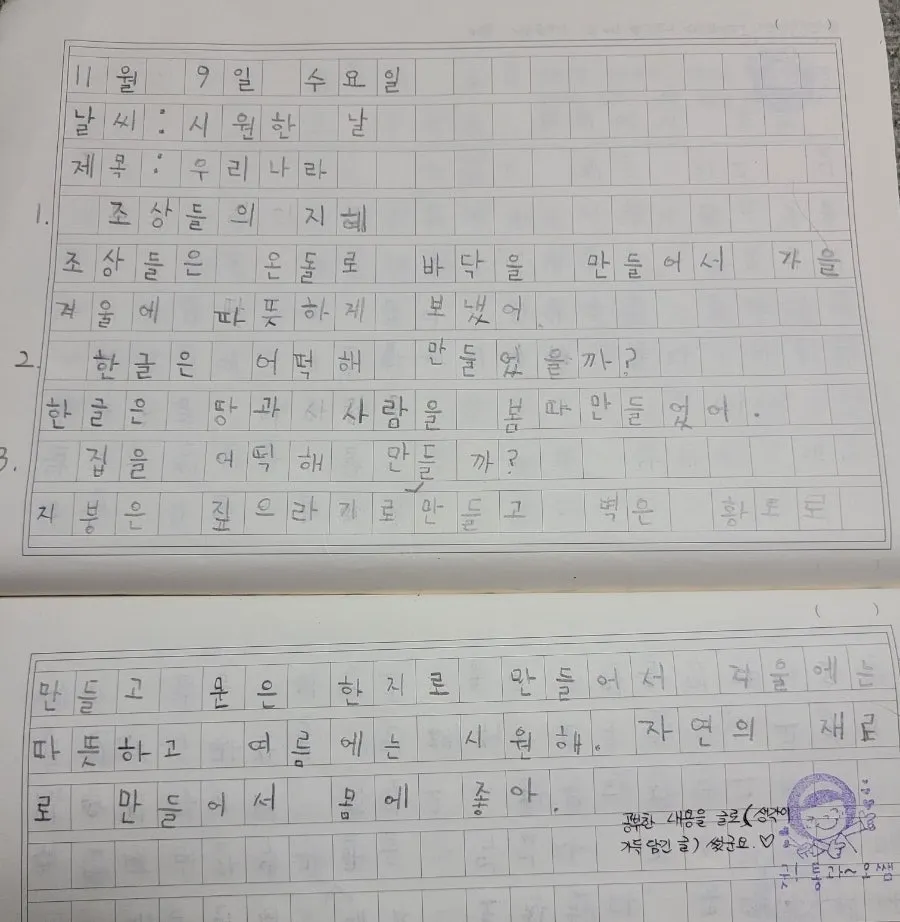 11월 9일 수요일
날씨: 시원한 날
제목: 우리나라
1. 조상들의 지혜
조상들은 온돌로 바닥을 만들어서 가을
겨울에 따뜻하게 보냈어.
2. 한글은 어떡해 만들었을까?
한글은 땅과 사람을 봄따만들었어.
3. 집을 어떡해 만들까?
지붕은 짚으라기로 만들고 벽은 황토로
만들고 문은 한지로 만들어서 겨울에는
따뜻하고 여름에는 시원해. 자연의 재료
로 만들어서 몸에 좋아.
공부한 내용을 글로(생각이
가득 담긴 글) 썼군요.♡